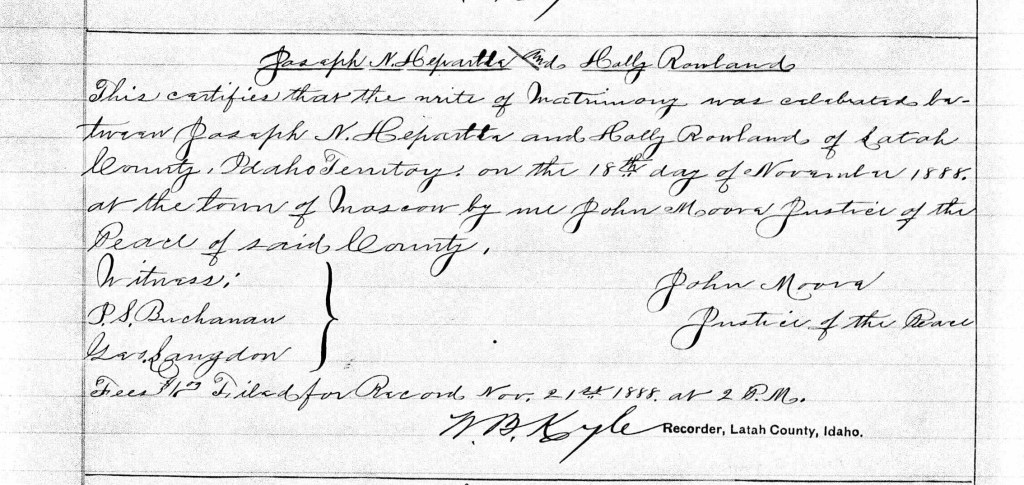 Joseph N. Hepartla and Holly Rowland
This certifies that the write of Matrimony was celebrated be-
tween Joseph N. Hepartla and Holly Rowland of Latah
County, Idaho Territory. on the 18th day of November 1888.
at the town of Moscow by me John Moore Justice of the
Peace of said County.
Witness:
John Moore
P. S. Buchanan
Justice of the Peace
Geo. Langdon
Fees Filed for Record Nov. 21st 1888. at 2 P.M.
W. B. Kyle Recorder, Latah County, Idaho.